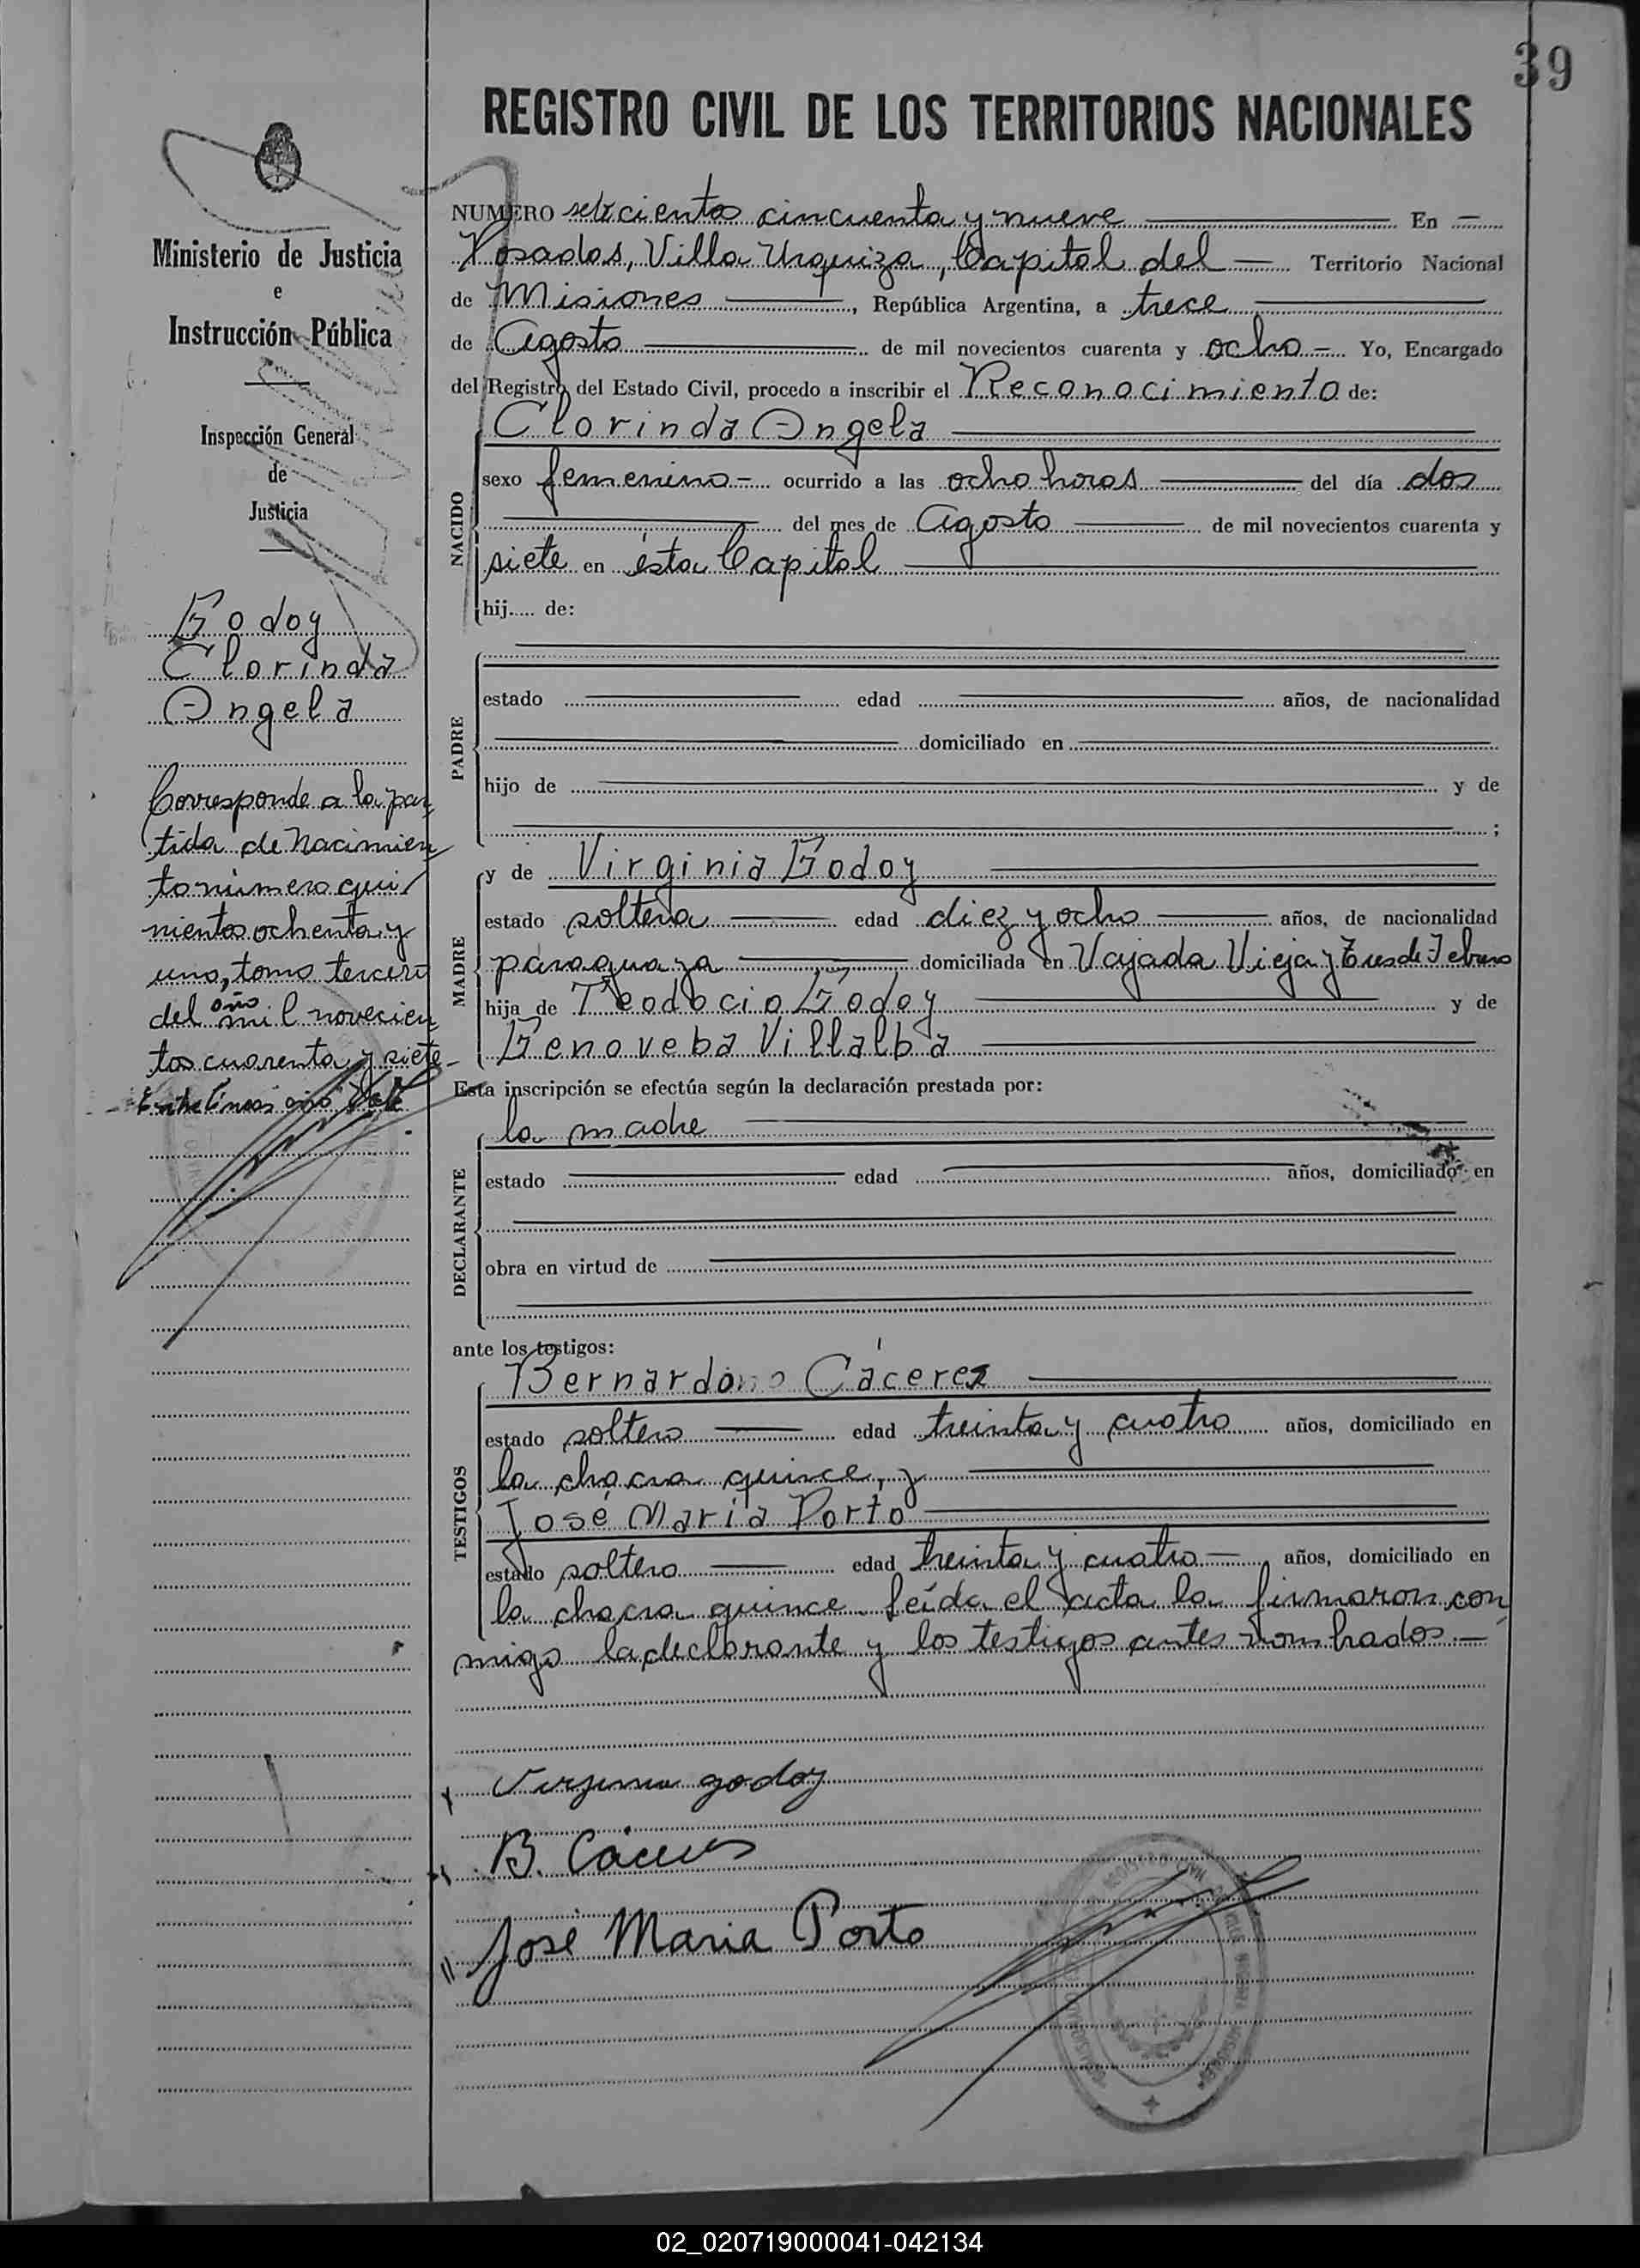 39
REGISTRO CIVIL DE LOS TERRITORIOS NACIONALES
Ministerio de Justicia
e
Instrucción Pública
Inspección General
de
Justicia
Godoy
Clorinda
Angela
Corresponde a la par
tida de Nacimien
to número qui
nientos ochenta y
uno, tomo tercero
del año mil novecien
tos cuarenta y siete.-
Entre líneas año Vale
NUMERO setecientos cincuenta y nueve En
Posadas, Villa Urquiza, Capital del Territorio Nacional
de Misiones, República Argentina, a trece
de Agosto de mil novecientos cuarenta y ocho Yo, Encargado
del Registro del Estado Civil, procedo a inscribir el Reconocimiento de:
NACIDO
Clorinda Angela
sexo femenino ocurrido a las ocho horas del día dos
del mes de Agosto de mil novecientos cuarenta y
siete en ésta Capital
hij..... de:
PADRE
estado edad años, de nacionalidad
domiciliado en
hijo de y de
;
MADRE
y de Virginia Godoy
estado soltera edad diez y ocho años, de nacionalidad
paraguaya domiciliada en Vajada Vieja y Tres de Febrero
hija de Teodocio Godoy y de
Genoveba Villalba
Esta inscripción se efectúa según la declaración prestada por:
DECLARANTE
la madre
estado edad años, domiciliado en
obra en virtud de
ante los testigos:
TESTIGOS
Bernardo Cáceres
estado soltero edad treinta y cuatro años, domiciliado en
la chacra quince, y
José Maria Porto
estado soltero edad treinta y cuatro años, domiciliado en
la chacra quince. Leída el acta la firmaron con
migo la declarante y los testigos antes nombrados.-
Virginia godoy
B. Cáceres
José Maria Porto
02_020719000041-042134